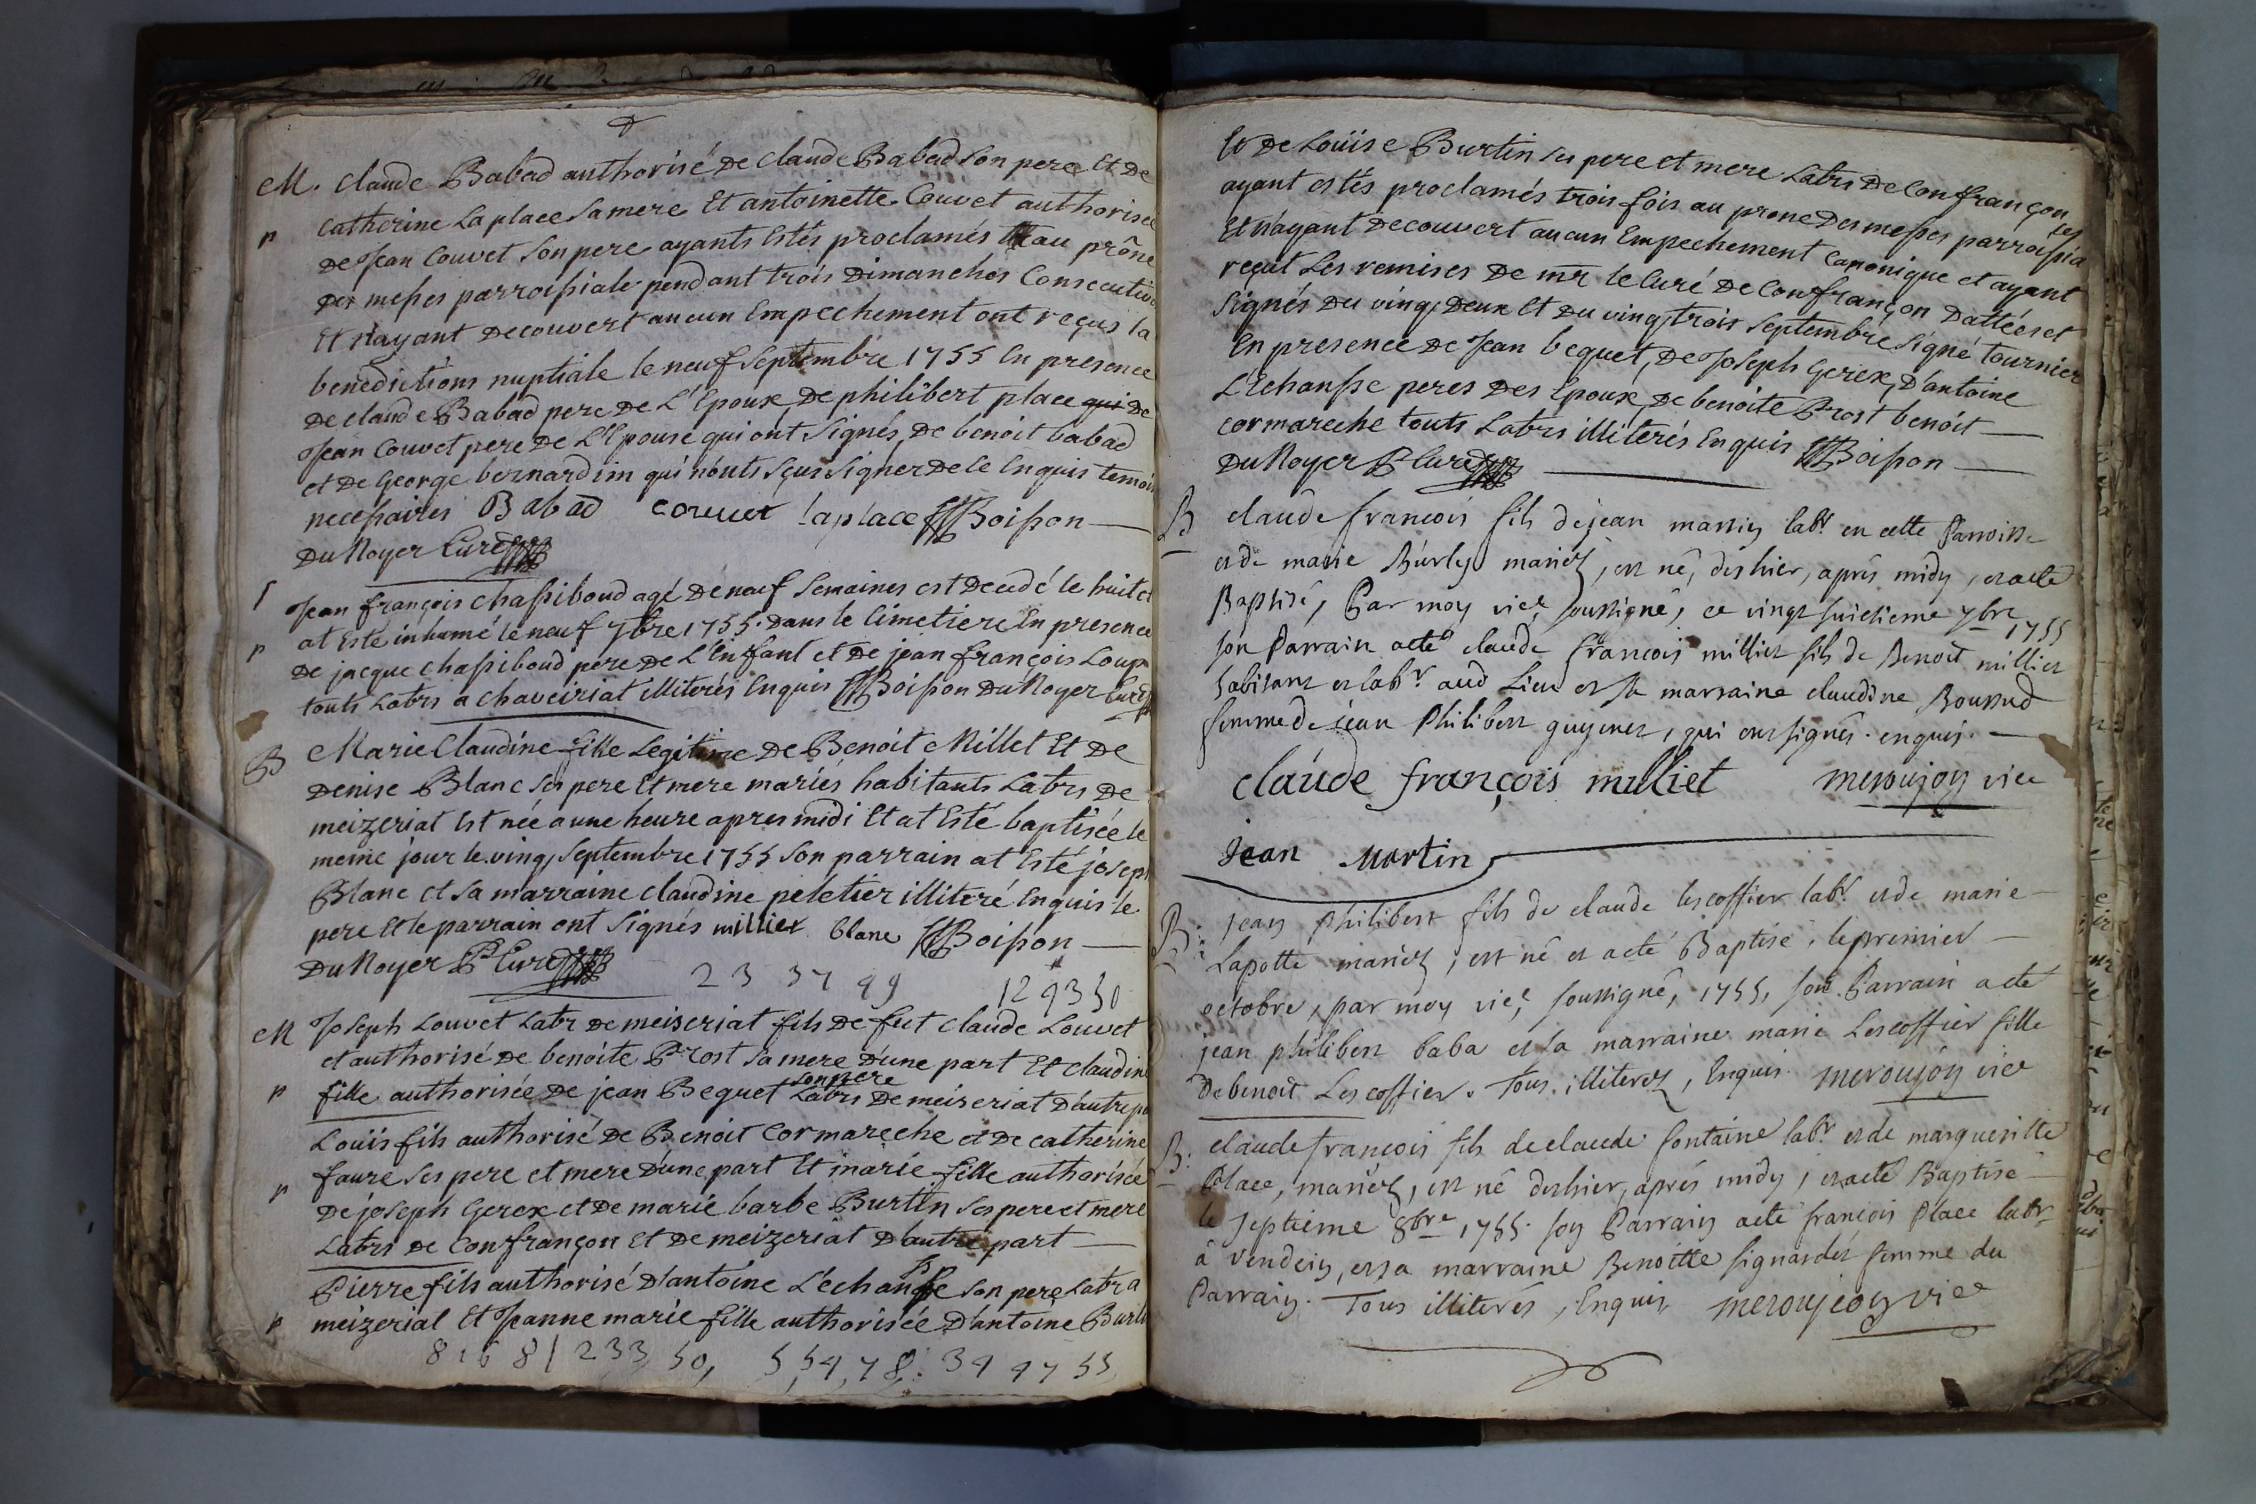 M. Claude Babad authorisé de Claude Babad son pere Et De
Catherine Laplace Samere Et antoinette Couvet authorisée
p
De Jean Couvet Son pere ayants Estés proclamés au prône
Des messes parroissiale pendant trois Dimanches Consecutiv
Et N'ayant Decouvert aucun Empechement ont reçus la
benedictions nuptiale le neuf Septembre 1755 En presence
De claude Babad pere De L'Epoux, De philibert place qui De
Jean Couvet pere De L'Epouse qui ont Signés, De benoit babad
et De George bernardim qui n'onts Sçus Signer De Ce Enquis temoin
necessaires Babad couuet laplace Boisson
DuNoyer Curé
S
Jean françois Chassiboud agé De neuf Semaines est Decedé le huit et
p
at Esté inhumé le neuf 7bre 1755. Dans le Cimetiere En presence
De jacque Chassiboud pere De L'Enfant et De jean françois Loup
touts Labrs a Chaveiriat illiterés Enquis Boisson DuNoyer Curé
B
Marie Claudine fille Legitime De Benoit Millet Et De
Denise Blanc Ses pere Et mere mariés habitants Labrs De
meizeriat Est née a une heure apres midi Et at Esté baptisée le
meme jour le ving, Septembre 1755 Son parrain at Esté joseph
Blanc et Sa marraine Claudine peletier illiteré Enquis le
pere Et le parrain ont Signés milliet blanc Boisson
DuNoyer P Curé
23 37 99 12 9330
M Joseph Louvet Labr De meiseriat fils De feut Claude Louvet
et authorisé De benoite Prost Sa mere D'une part Et Claudine
son pere
p fille authorisée De jean Bequet Labrs De meiseriat D'autre pa
Louis fils authorisé De Benoit Cormareche et De catherine
faure Ses pere et mere D'une part Et marie fille authorisée
p
De joseph Gerex et De marie barbe Burtin Ses pere et mere
Labrs De Confrançon Et De meizeriat D'autre part
Pierre fils authorisé D'antoine L'echansse Son pere Labr a
p meizeriat Et Jeanne marie fille authorisée D'antoine Burti
8168 1 233 50, 5,54,78. 34 47 55
Et De Loüise Burtin Ses pere et mere Labrs De Confrançon
ayant estés proclamés trois fois au prone Des messes parroissia
les
Et N'ayant Decouvert aucun Empechement Canonique et ayant
reçut Les remises De mr le Curé De Confrançon Dattées et
Signés Du ving, Deux Et Du ving, trois Septembre Signé tournier
En presence De Jean bequet, De Joseph Gerex, D'antoine
L'Echansse peres Des Epoux, De benoite Prost benoit
Cormareche touts Labrs illiterés Enquis Boisson
DuNoyer P Curé
B
claude francois fils de jean martin labr. en cette Parroisse
et de marie Burley mariéz, est né, deshier, aprés midy, et a eté
Baptisé, Par moy vice soussigné, ce vingt huictieme 7bre 1755
son Parrain a eté claude francois milliet fils de Benoit milliet
habitant et labr. aud Lieu et sa marraine claudine Bourrud
femme de jean Philibert guyenet, qui ont signés. enquis.
claude françois milliet meroujon vice
jean Martin
B: jean Philibert fils de claude lescoffier labr. et de marie
Lapotte mariéz, est né et a eté Baptisé, le premier
octobre, par moy vice soussigné, 1755, son Parrain a eté
jean philibert baba et sa marraine marie Lescoffier fille
de benoit Lescoffier. Tous illiteréz, Enquis. meroujon vice
B: claude francois fils de claude fontaine labr. et de margueritte
Place, mariéz, est né deshier, aprés midy, et a eté Baptisé
le septieme 8bre 1755. son Parrain a eté francois Place labr
à vendein, et sa marraine Benoitte signardet femme du
Parrain. Tous illiterés, Enquis meroujeon vice